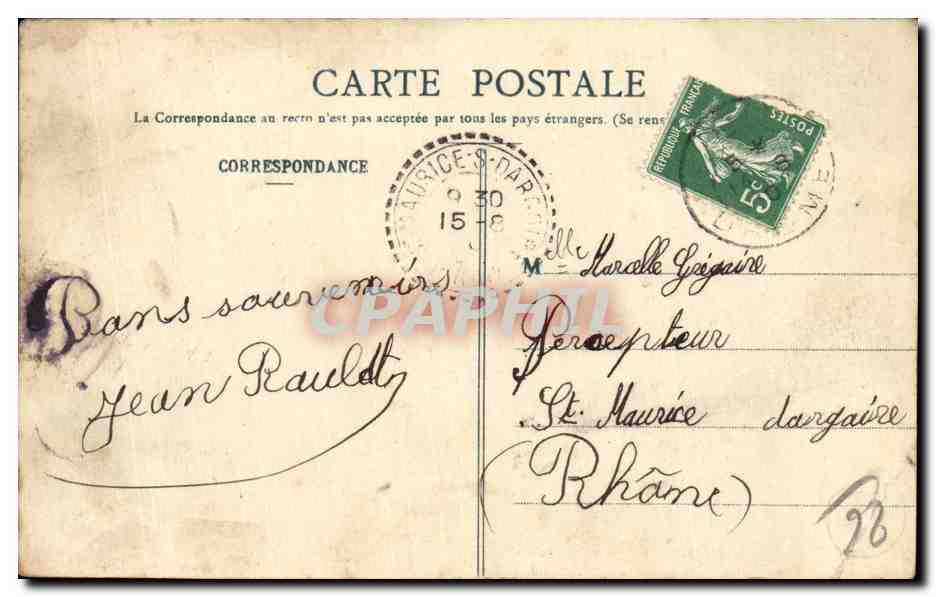 CARTE POSTALE
La Correspondance au recto n'est pas acceptée par tous les pays étrangers. (Se rens
CORRESPONDANCE
MAURICE-S-DARGOIRE
9 30
15-8
REPUBLIQUE FRANÇAI
POSTES
5c
Bons souvenirs
Jean Rauldt
Mlle Marcelle Grégaire
Percepteur
St. Maurice dargaire
(Rhône)
CPAPHIL
98